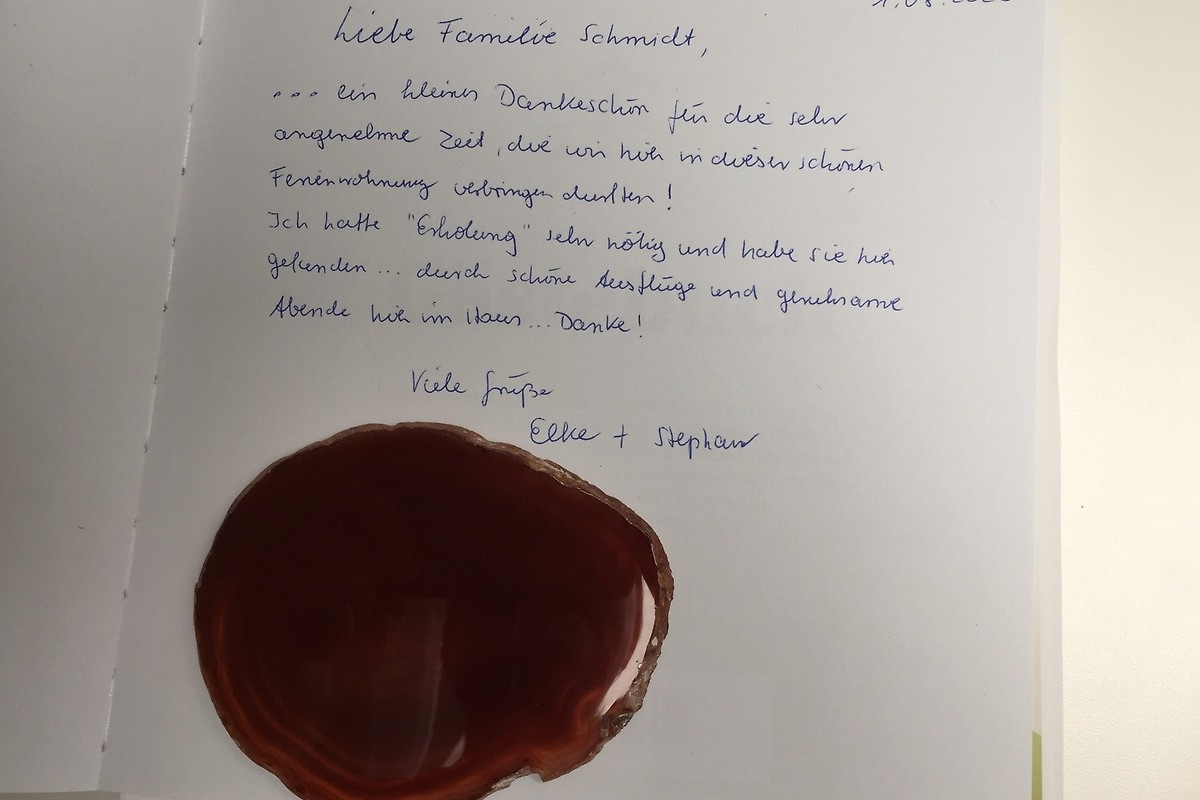 Liebe Familie Schmidt,
... ein kleines Dankeschön für die sehr
angenehme Zeit, die wir hier in dieser schönen
Ferienwohnung verbringen durften!
Ich hatte "Erholung" sehr nötig und habe sie hier
gefunden ... durch schöne Ausflüge und geruhsame
Abende hier im Haus ... Danke!
Viele Grüße
Elke + Stephan